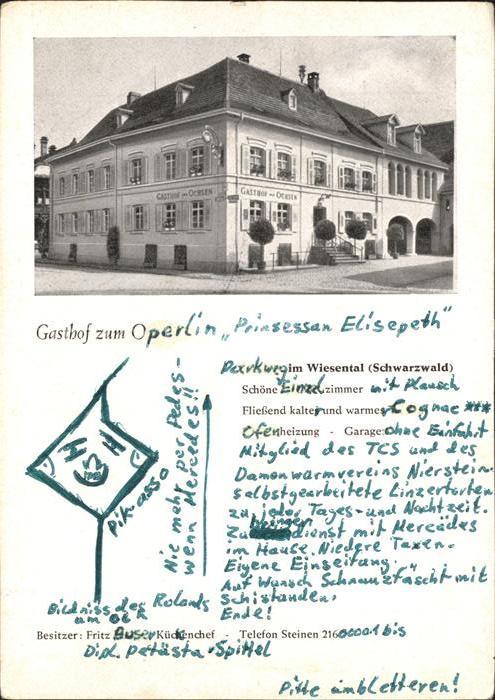 GASTHOF ZUM OCHSEN
GASTHOF ZUM OCHSEN
Gasthof zum Operlin „Prinsessan Elisepeth"
Parkweg im Wiesental (Schwarzwald)
Schöne Einzelzimmer mit Plausch
Fließend kalter und warmer Cognac ***
Ofenheizung - Garage: ohne Einfahrt
Mitglied des TCS und des
Damonwarmvereins Nierstein
selbstgearbeitete Linzertorten
zu jeder Tages- und Nachtzeit.
Zubringerdienst mit Mercedes
im Hause. Niedere Taxen.
Eigene Einseitung.
Auf Wunsch Schnauzfascht mit
Schistanden.
Ende!
Nie mehr per Pedes -
wenn Mercedes!!
H H
Pik-asso
Bildniss des Rolands
um 06 h
Besitzer: Fritz Buser Küchenchef - Telefon Steinen 216 00001 bis
Dipl. Petästa-Spittel
Pitte ambletteren!